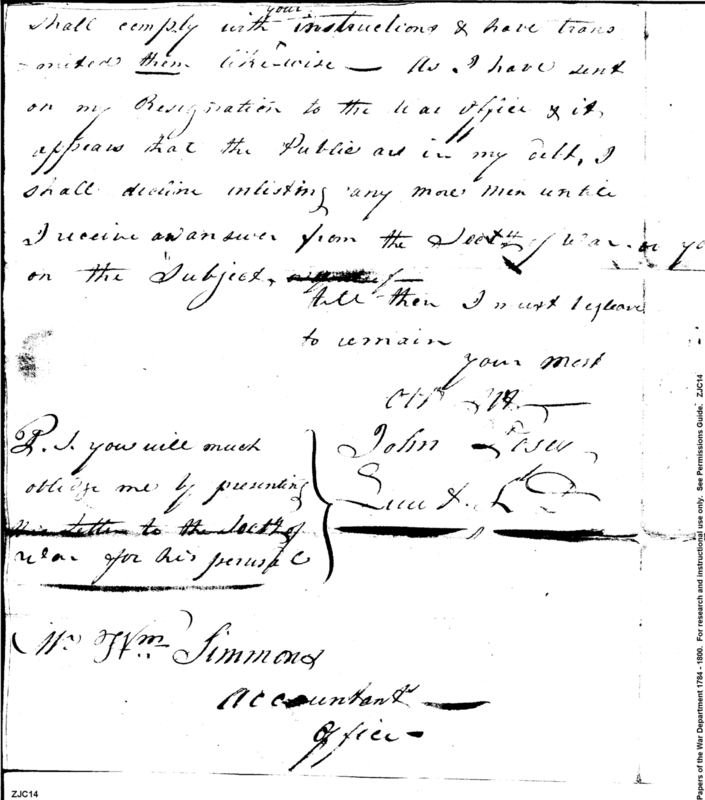 your
shall comply with instructions & have trans
-mited them likewise — As I have sent
on my Resignation to the War Office & it
appears that the Public are in my debt, I
shall decline inlisting any more Men untill
I receive an answer from the Secty of War or yo
on the Subject,
till then I must beg leave
to remain
your most
John
Lieut.
P. S. you will much
oblidge me by presenting
this letter to the Secty of
War for his perusal
Mr Wm Simmons
Accountants
Office
ZJC14
Papers of the War Department 1784 - 1800. For research and instructional use only. See Permissions Guide. ZJC14